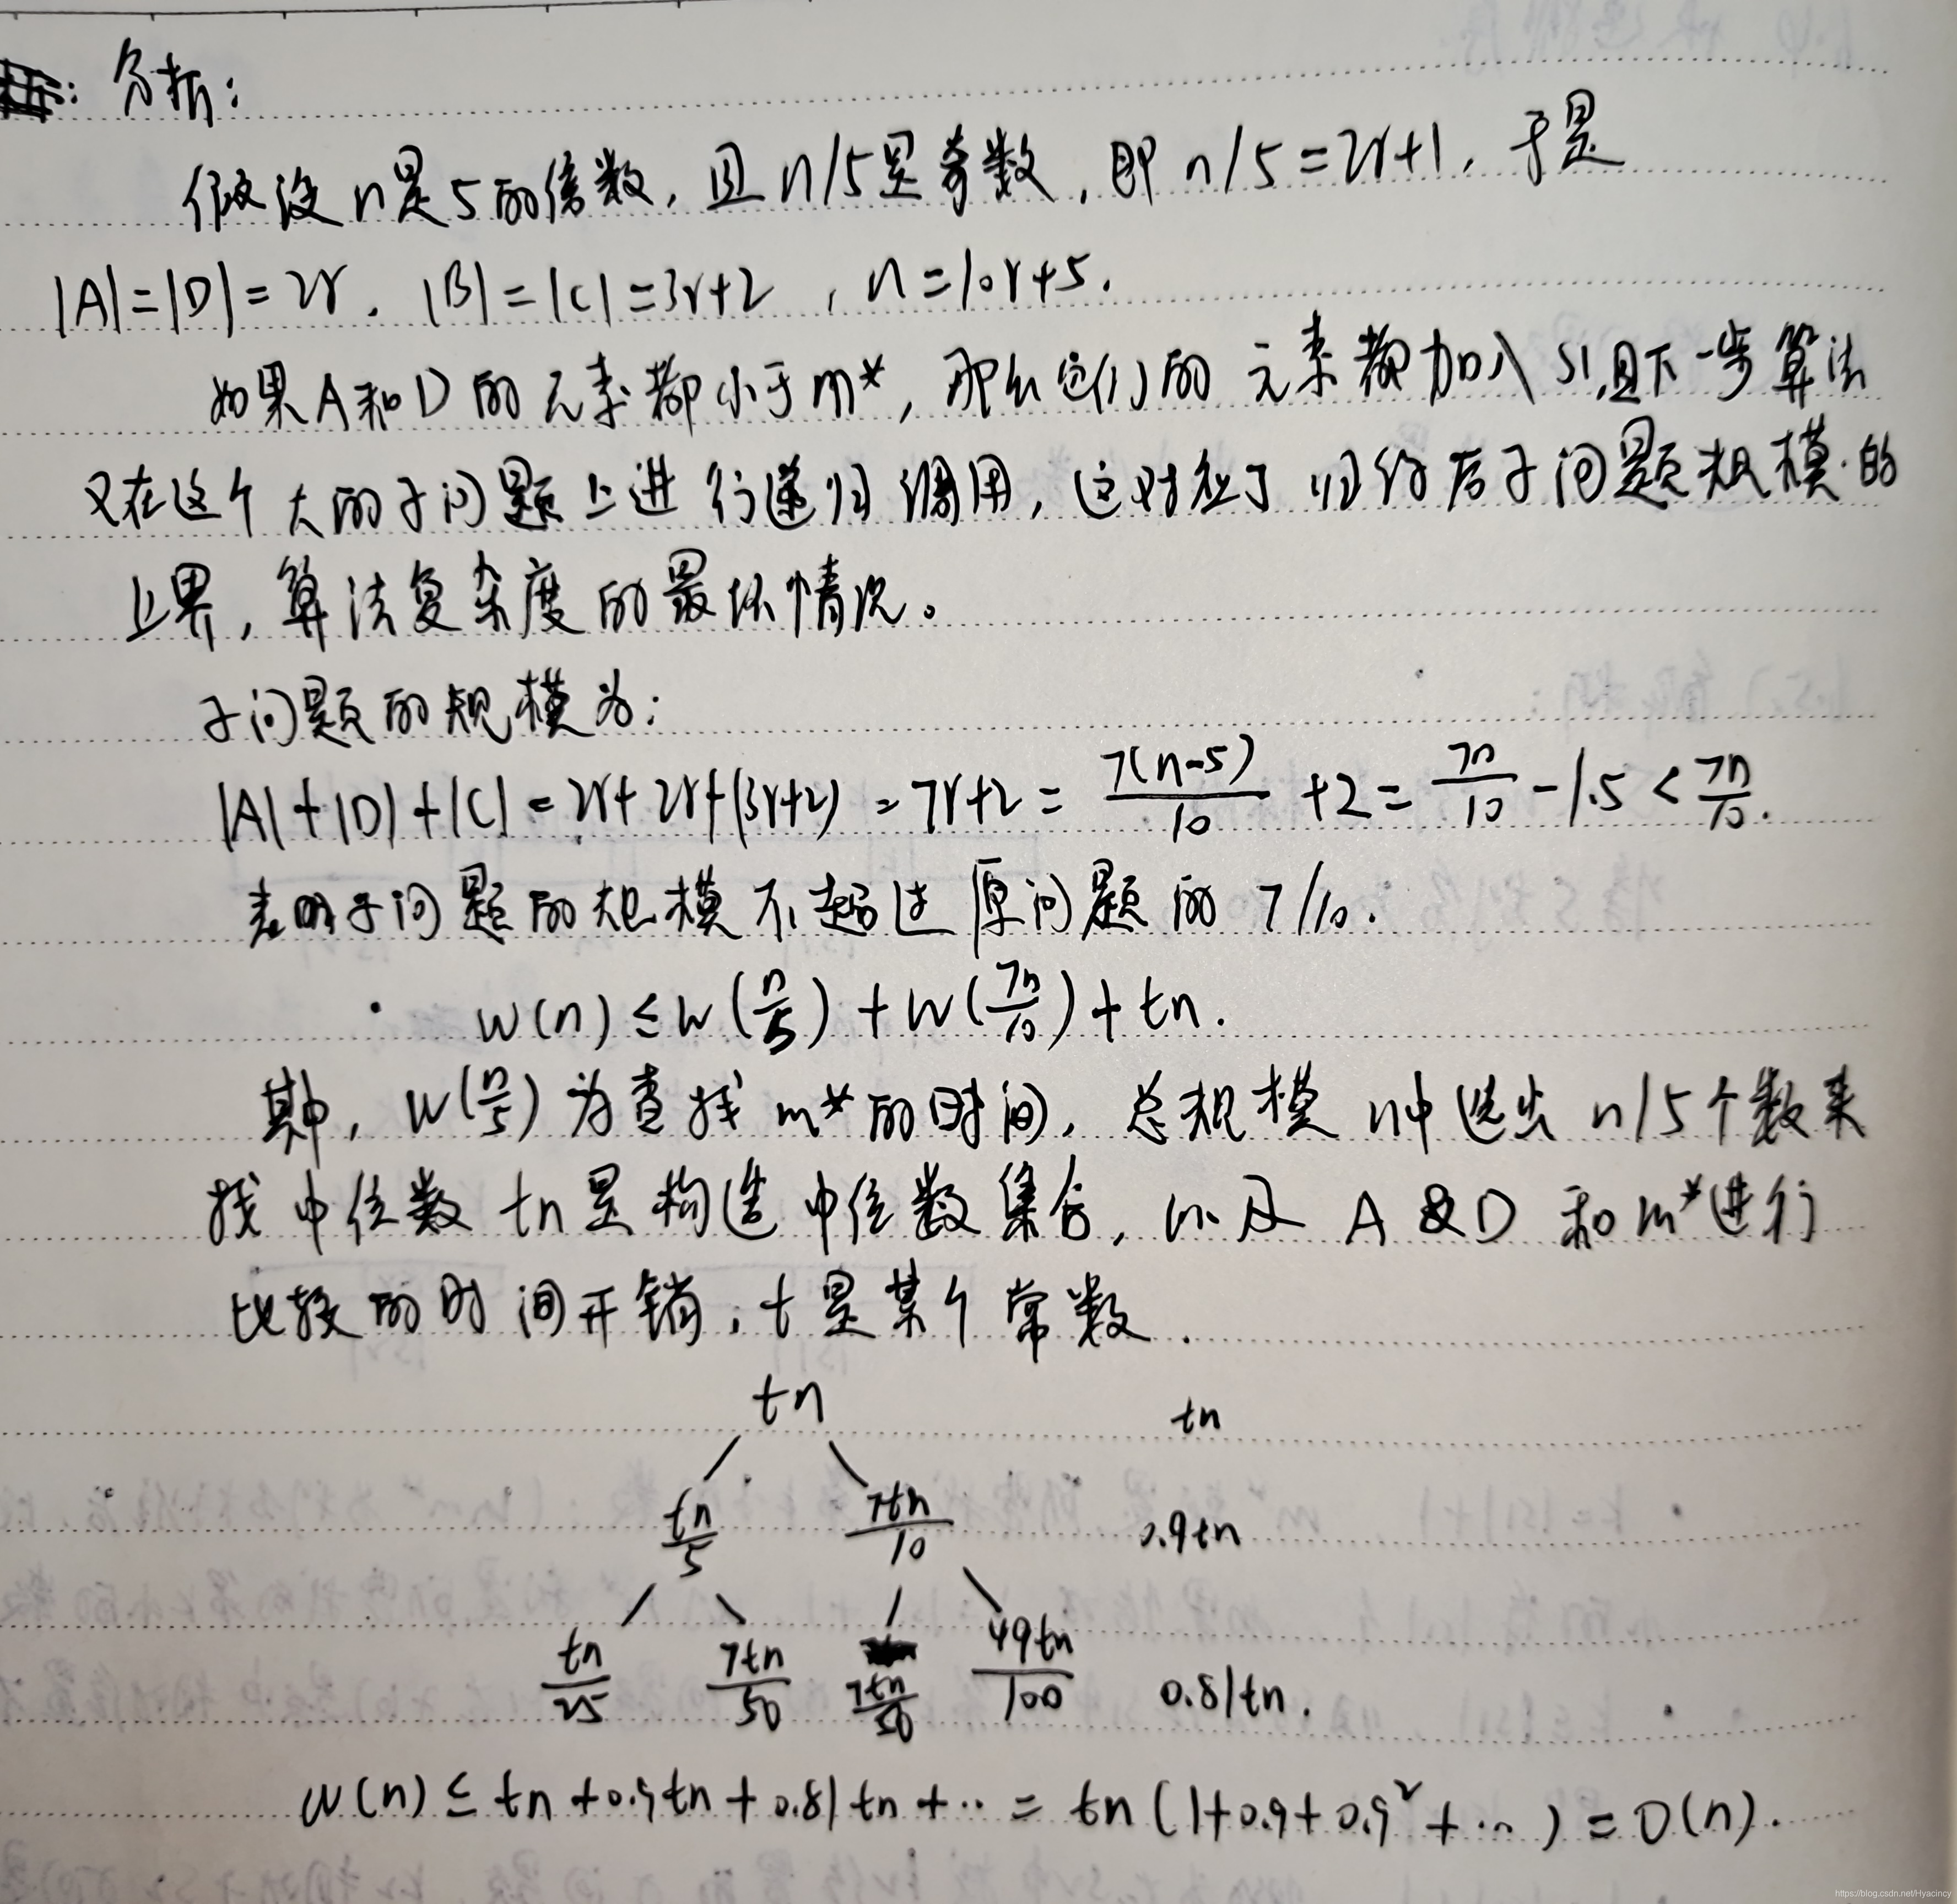 分析:
假设n是5的倍数,且n/5是奇数,即n/5=2r+1,于是
|A|=|D|=2r.|B|=|C|=3r+2,n=10r+5.
如果A和D的元素都小于m*,那么它们的元素都加入S1,且下一步算法
又在这个大的子问题上进行递归调用,这对应了归约后子问题规模的
上界,算法复杂度的最坏情况。
子问题的规模为:
|A|+|D|+|C|=2r+2r+(3r+2)=7r+2=7(n-5)/10+2=7n/10-1.5<7n/10.
表明子问题的规模不超过原问题的7/10.
W(n)≤W(n/5)+W(7n/10)+tn.
其中,W(n/5)为查找m*的时间,总规模n中选出n/5个数来
找中位数 tn是构造中位数集合,以及A&D和m*进行
比较的时间开销,t是某个常数.
tn tn
tn/5 7tn/10 0.9tn
tn/25 7tn/50 7tn/50 49tn/100 0.81tn.
W(n)≤tn+0.9tn+0.81tn+…=tn(1+0.9+0.9²+…)=O(n).
https://blog.csdn.net/Hyacincy